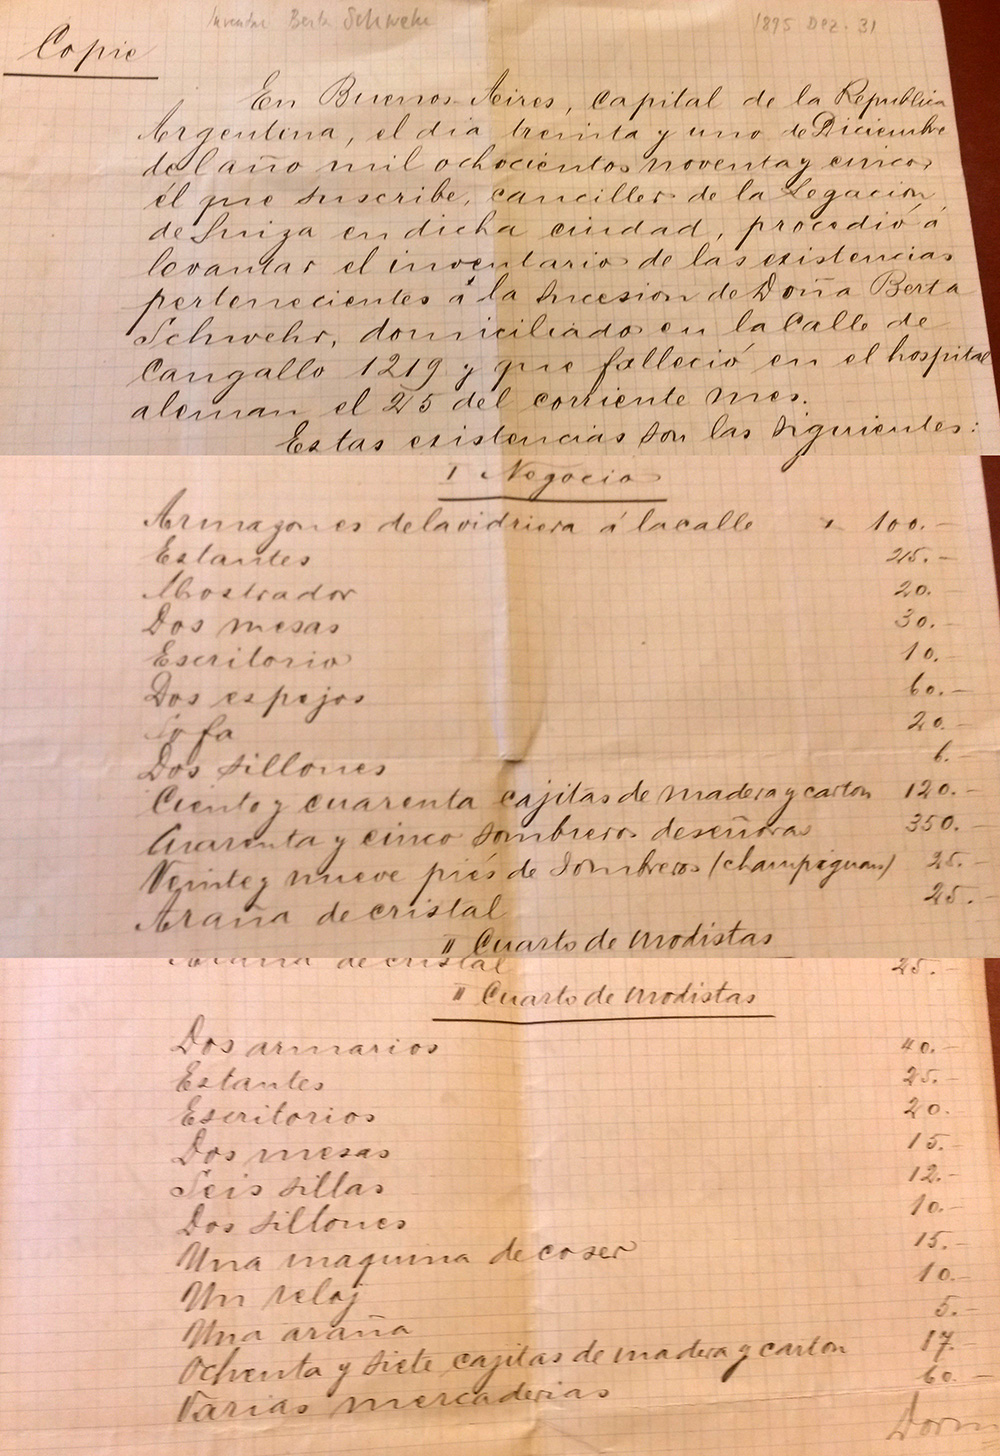 Inventar Berta Schwehr 1895 Dez. 31
Copie
En Buenos-Aires, capital de la Republica
Argentina, el dia treinta y uno de Diciembre
del año mil ochocientos noventa y cinco,
él que suscribe, canciller de la Legacion
de Suiza en dicha ciudad, procedió á
levantar el inventario de las existencias
pertenecientes á la Sucesion de Doña Berta
Schwehr, domiciliado en la Calle de
Cangallo 1219 y que falleció en el hospital
aleman el 25 del corriente mes.
Estas existencias son las siguientes:
I Negocio
Armazones de la vidriera á la calle 100.-
Estantes 25.-
Mostrador 20.-
Dos mesas 30.-
Escritorio 10.-
Dos espejos 60.-
Sofa 20.-
Dos sillones 6.-
Ciento y cuarenta cajitas de madera y carton 120.-
Cuarenta y cinco sombreros de señoras 350.-
Veinte y nueve piés de Sombreros (champignons) 25.-
Araña de cristal 25.-
II Cuarto de Modistas
Araña de cristal 25.-
II Cuarto de Modistas
Dos armarios 40.-
Estantes 25.-
Escritorios 20.
Dos mesas 15.-
Seis sillas 12.-
Dos sillones 10.-
Una maquina de coser 15.-
Un reloj 10.-
Una araña 5.-
Ochenta y siete cajitas de madera y carton 17.
Varias mercaderias 60.-
Dorm